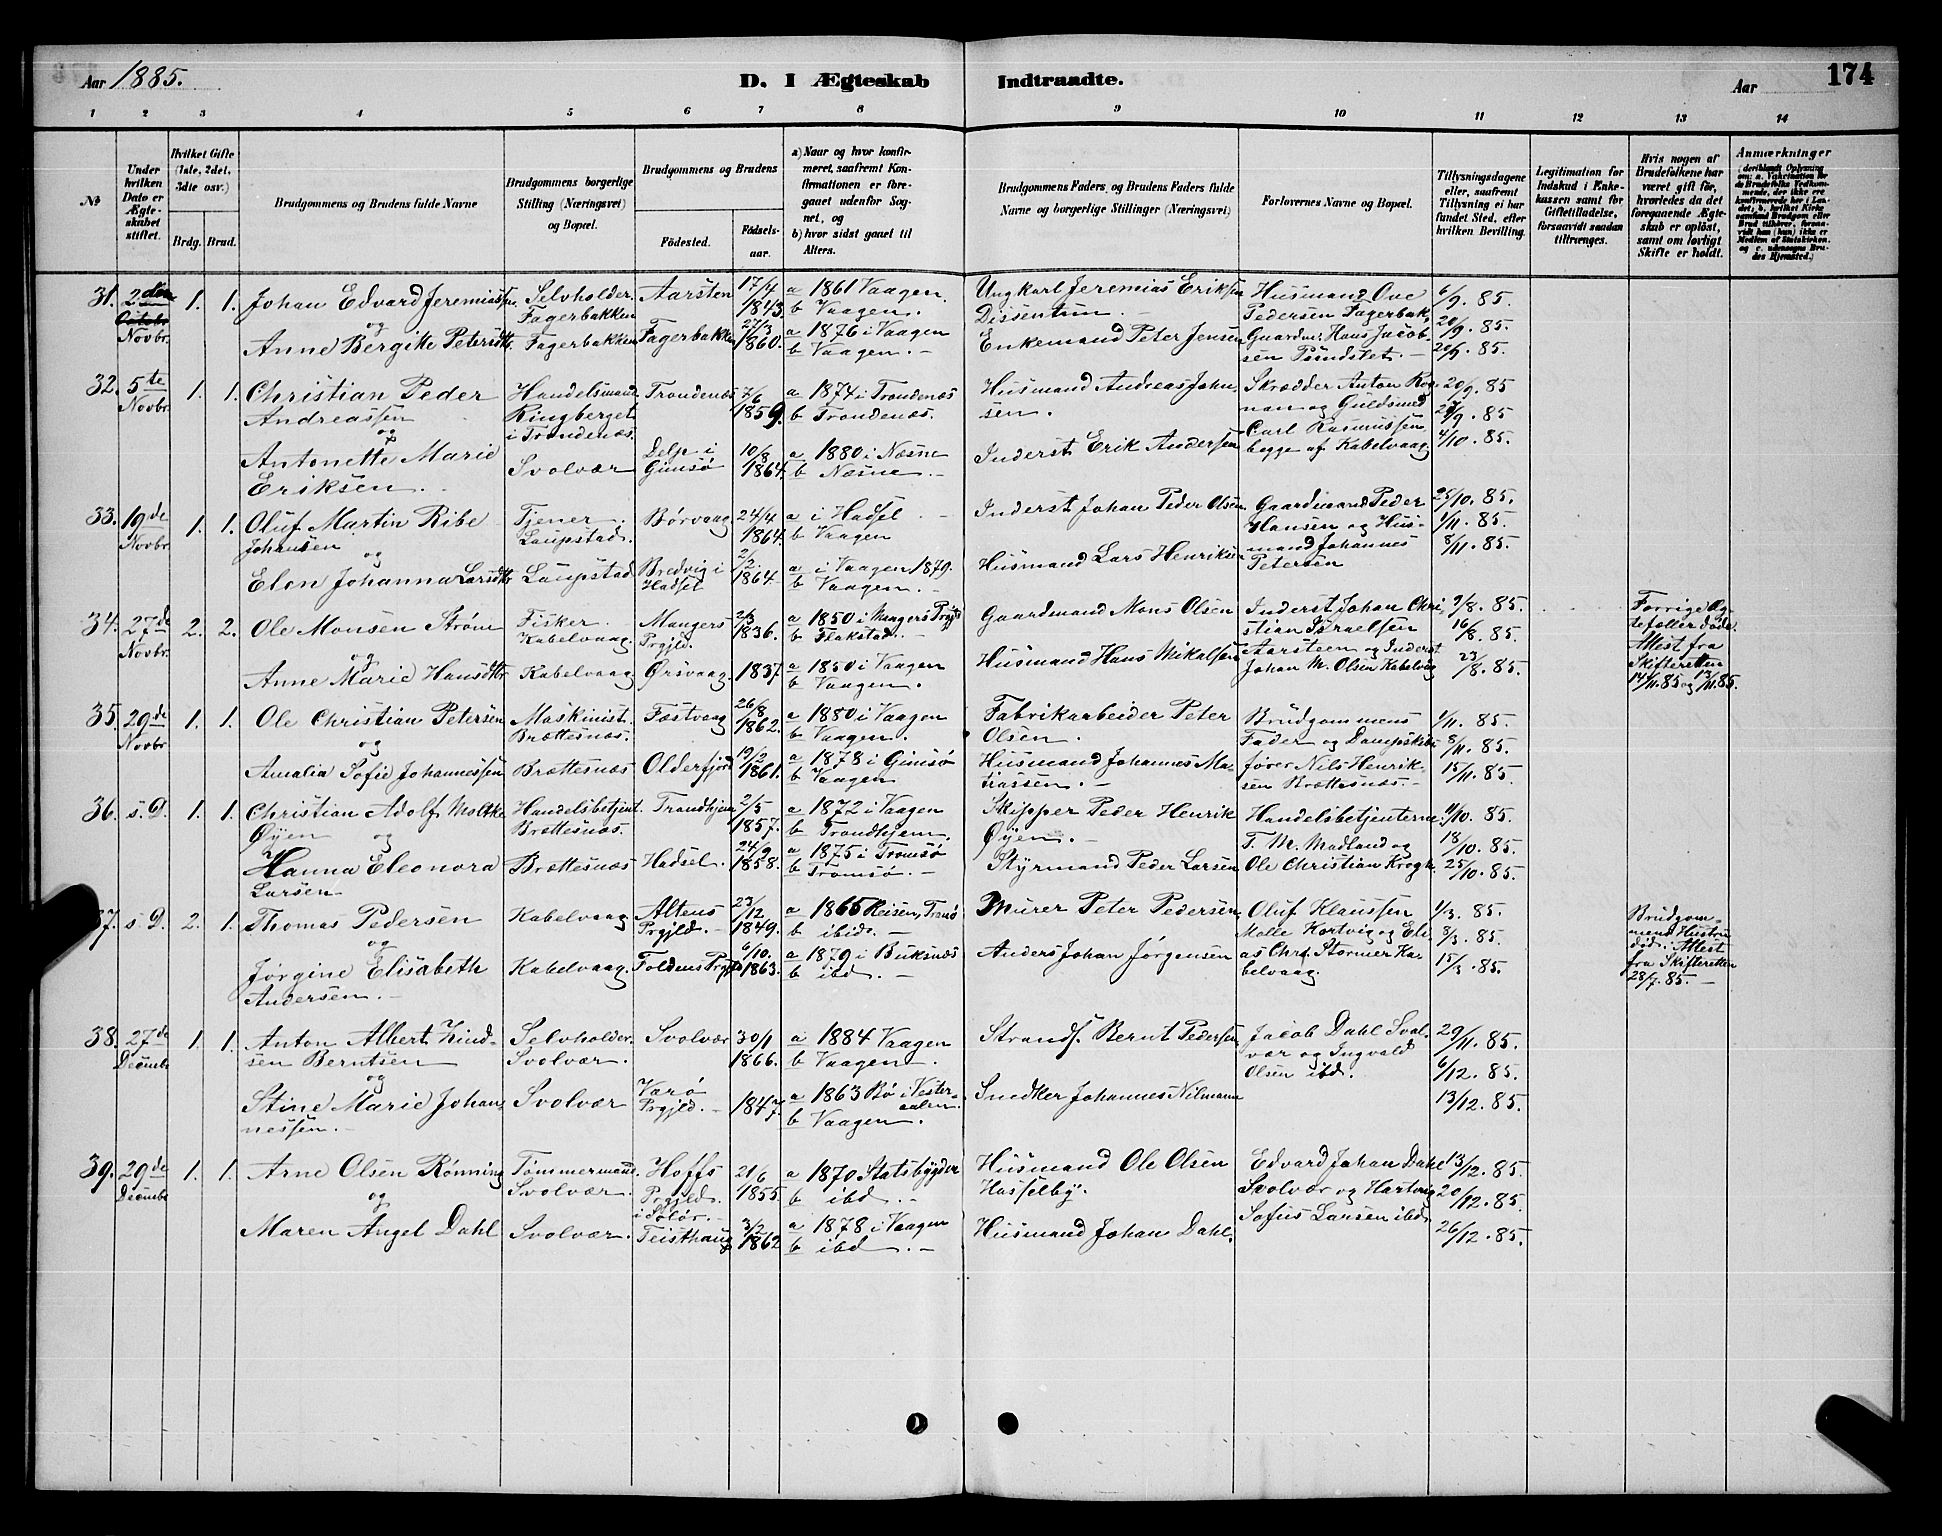 Aar 1885.
D. I Ægteskab Indtraadte.
Aar
174
1 2 3 4 5 6 7 8 9 10 11 12 13 14
No
Under hvilken Dato er Ægteskabet stiftet.
Hvilket Gifte (1ste, 2det, 3die osv.)
Brdg. Brud.
Brudgommens og Brudens fulde Navne
Brudgommens borgerlige Stilling (Næringsvei) og Bopæl.
Brudgommens og Brudens
Födested. Födselsaar.
a) Naar og hvor konfirmeret, saafremt Konfirmationen er foregaaet udenfor Sognet, og
b) hvor sidst gaaet til Alters.
Brudgommens Faders, og Brudens Faders fulde Navne og borgerlige Stillinger (Næringsvei)
Forlovernes Navne og Bopæl.
Tillysningsdagene eller, saafremt Tillysning ei har fundet Sted, efter hvilken Bevilling.
Legitimation for Indskud i Enkekassen samt for Giftetilladelse, forsaavidt saadan tiltrænges.
Hvis nogen af Brudefolkene har været gift før, hvorledes da det foregaaende Ægteskab er opløst, samt om lovligt Skifte er holdt.
Anmærkninger
31. 2den Octobr. Novbr. 1. 1.
Johan Edvard Jeremiassen Selvholder Fagerbakken Aarsten 17/4 1843 a 1861 Vaagen. b Vaagen.
Ungkarl Jeremias Eriksen Dissentum.
og
Anne Bergitte Petersdtr. Fagerbakken Fagerbakken 27/3 1860. a 1876 i Vaagen b Vaagen.
Enkemand Peter Jensen
Husmand Ove Pedersen Fagerbak. Gaardm: Hans Jacobsen
6/9. 85. 20/9. 85.
32. 5te Novbr. 1. 1.
Christian Peder Andreassen Handelsmand Ringberget i Trondenæs. Trondenæs 7/6 1859. a 1874 i Trondenæs b Trondenæs.
Husmand Andreas Johnsen.
og
Antonette Marie Eriksen. Svolvær Delp i Gimsö 10/8 1864. a 1880 i Næsne b Næsne.
Inderst Erik Andersen
Skrædder Anton Rognan og Guldsmed Carl Rasmussen begge af Kabelvaag
20/9. 85 27/9. 85 4/10. 85.
33. 19de Novbr. 1. 1.
Oluf Martin Ribe Johansen Tjener Laupstad. Børvaag 24/4 1864. a i Hadsel b Vaagen
Inderst Johan Peder Olsen
og
Elen Johanna Larsdtr. Laupstad Bredvig i Hadsel 2/2. 1864. a i Vaagen 1879. b Vaagen.
Husmand Lars Henriksen
Gaardmand Peder Hansen og Husmand Johannes Petersen
25/10. 85. 1/11. 85. 8/11. 85.
34. 27de Novbr. 2. 2.
Ole Monsen Strøm Fisker Kabelvaag Mangers Prgjld. 2/3 1836. a 1850 i Mangers Prgjd b Flakstad.
Gaardmand Mons Olsen
og
Anne Marie Hansdtr Kabelvaag Ørsvaag 1837. a 1850 i Vaagen b Vaagen.
Husmand Hans Mikalsen
Inderst Johan Christian Israelsen Aarsteen og Inderst Johan M. Olsen Kabelvåg
9/8. 85. 16/8. 85. 23/8. 85.
Forrige Ægtefæller døde. Attest fra Skifteretten 14/11. 85 og 17/11. 85.
35. 29de Novbr. 1. 1.
Ole Christian Petersen Maskinist. Brættesnæs. Festvaag 26/8 1862. a 1880 i Vaagen b Vaagen.
Fabrikarbeider Peter Olsen.
og
Amalia Sofie Johannessen Brættesnæs Olderfjord 19/2 1861. a 1878 i Gimsö b Vaagen
Husmand Johannes Matiassen.
Brudgommens Fader og Dampskibsfører Nils Henriksen Brættesnæs.
1/11. 85. 8/11. 85. 15/11. 85.
36. s. D. 1. 1.
Christian Adolf Moltke Øyen Handelsbetjent Brættesnæs. Trondhjem 2/5 1857. a 1872 i Vaagen b Trondhjem.
Skipper Peder Henrik Øyen.
og
Hanna Eleonora Larsen Brættesnæs Hadsel. 24/9 1858. a 1875 i Tromsö b Tromsö.
Styrmand Peder Larsen
Handelsbetjenterne T. M. Madland og Ole Christian Krogh.
11/10. 85. 18/10. 85. 25/10. 85.
37. s. D. 2. 1.
Thomas Pedersen Kabelvaag Altens Prgjld. 23/12 1849. a 1865 Reisen, Tromsö b ibid.
Murer Peter Pedersen
og
Jørgine Elisabeth Andersen. Kabelvaag. Foldens Prgjld 6/10. 1863. a 1879 i Buksnæs b ibd.
Anders Johan Jørgensen
Oluf Klaussen Molle Kortvig og Elias Chr. Stormer Kabelvaag.
1/3. 85. 8/3. 85. 15/3. 85.
Brudgommens Hustru död. Attest fra Skifteretten 28/7. 85.
38. 27de Decembr 1. 1.
Anton Albert Zindsen Berntsen Selvholder Svolvær. Svolvær 30/1 1866. a 1884 Vaagen b Vaagen.
Strands. Bernt Pedersen
og
Stine Marie Johannessen. Svolvær Værö Prgjld. 1847. a 1863 Bø i Vesteraalen. b Vaagen.
Snedker Johannes Nilmann
Jacob Dahl Svolvær og Ingvald Olsen ibd.
29/11. 85. 6/12. 85. 13/12. 85.
39. 29de Decembr 1. 1.
Arne Olsen Rönning Tømmermand Svolvær. Hoffs Prgjld. i Solör. 21/6 1855. a 1870 Statsbygden b ibd.
Husmand Ole Olsen Hasselby.
og
Maren Angel Dahl Svolvær. Teisthaug 3/2 1862 a 1878 i Vaagen b ibd.
Husmand Johan Dahl.
Edvard Johan Dahl Svolvær og Hartvig Sofus Larsen ibd
13/12. 85. 20/12. 85. 26/12. 85.